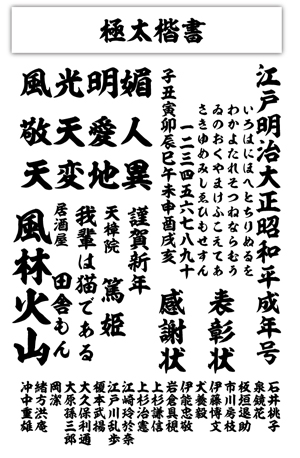 極太楷書
江戸明治大正昭和平成年号
いろはにほへとちりぬるを
わかよたれそつねならむう
ゐのおくやまけふこえてあ
さきゆめみしゑひもせすん
一二三四五六七八九十
子丑寅卯辰巳午未申酉戌亥
風光明媚
敬天愛人
天変地異
表彰状
感謝状
謹賀新年
天樟院
篤姫
我輩は猫である
居酒屋
田舎もん
風林火山
石井桃子
泉鏡花
板垣退助
市川房枝
伊藤博文
犬養毅
伊能忠敬
岩倉具視
上杉謙信
上杉治憲
江崎玲於奈
江戸川乱歩
榎本武揚
大久保利通
大原孫三郎
岡潔
緒方洪庵
沖中重雄